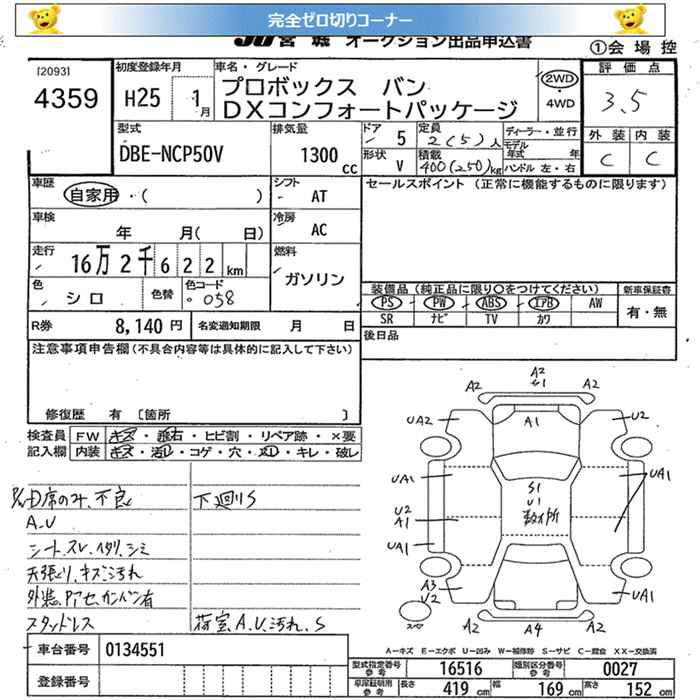 完全ゼロ切りコーナー
JU宮城 オークション出品申込書
①会場控
[2093]
4359
初度登録年月
H25 1月
車名・グレード
プロボックス バン
DXコンフォートパッケージ
2WD
・
4WD
評価点
3.5
外装 内装
C C
型式
DBE-NCP50V
排気量
1300
cc
ドア 5
形状 V
定員 2(5)人
積載 400(250)kg
ディーラー・並行
モデル
年式 年
ハンドル 左・右
車歴
自家用・( )
シフト
AT
セールスポイント(正常に機能するものに限ります)
車検
年 月( 日)
冷房
AC
走行
16万2千622km
燃料
ガソリン
色
シロ
色替
色コード
058
装備品(純正品に限り○をつけてください)
PS PW ABS エアB AW
SR ナビ TV カワ
新車保証書
有・無
R券 8,140円
名変通知期限 月 日
後日品
注意事項申告欄(不具合内容等は具体的に記入して下さい)
修復歴 有 [箇所 ]
検査員
記入欄
FW キズ・飛石・ヒビ割・リペア跡・×要
内装 キズ・汚レ・コゲ・穴・スレ・キレ・破レ
P/W D席のみ不良
A.U
シート.スレ.ヘタリ.シミ
天張り.キズ汚れ
スタッドレス
下廻りS
荷室A.U.汚れ.S
A2
S1
A2
A2
UA2
A1
U2
UA1
S1
U1
数ヶ所
UA1
U2
A1
UA1
A3
U2
UA1
A2
A4
A2
A=キズ E=エクボ U=凹み W=補修跡 S=サビ C=腐食 XX=交換済
車台番号 0134551
登録番号
型式指定番号
参考
16516
類別区分番号
参考
0027
車庫証明用
参考
長さ 419cm
幅 169cm
高さ 152cm